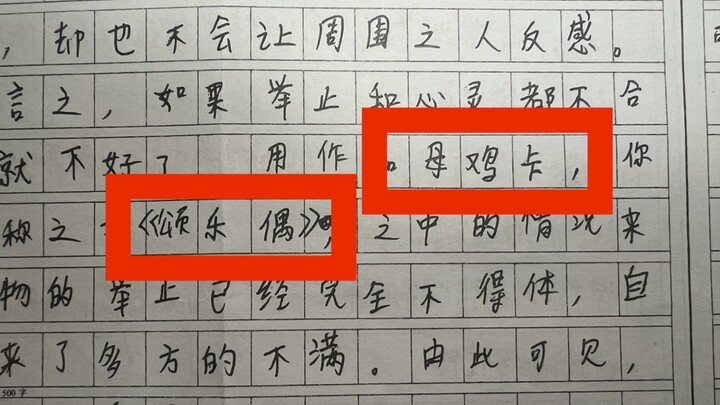 ，却也不会让周围之人反感。
言之，如果举止和心灵都不合
就不好了 用作 母鸡卡，你
称之 《颂乐 偶》，之中的情况来
物的举止已经完全不得体，自
来了多方的不满。由此可见，
500字